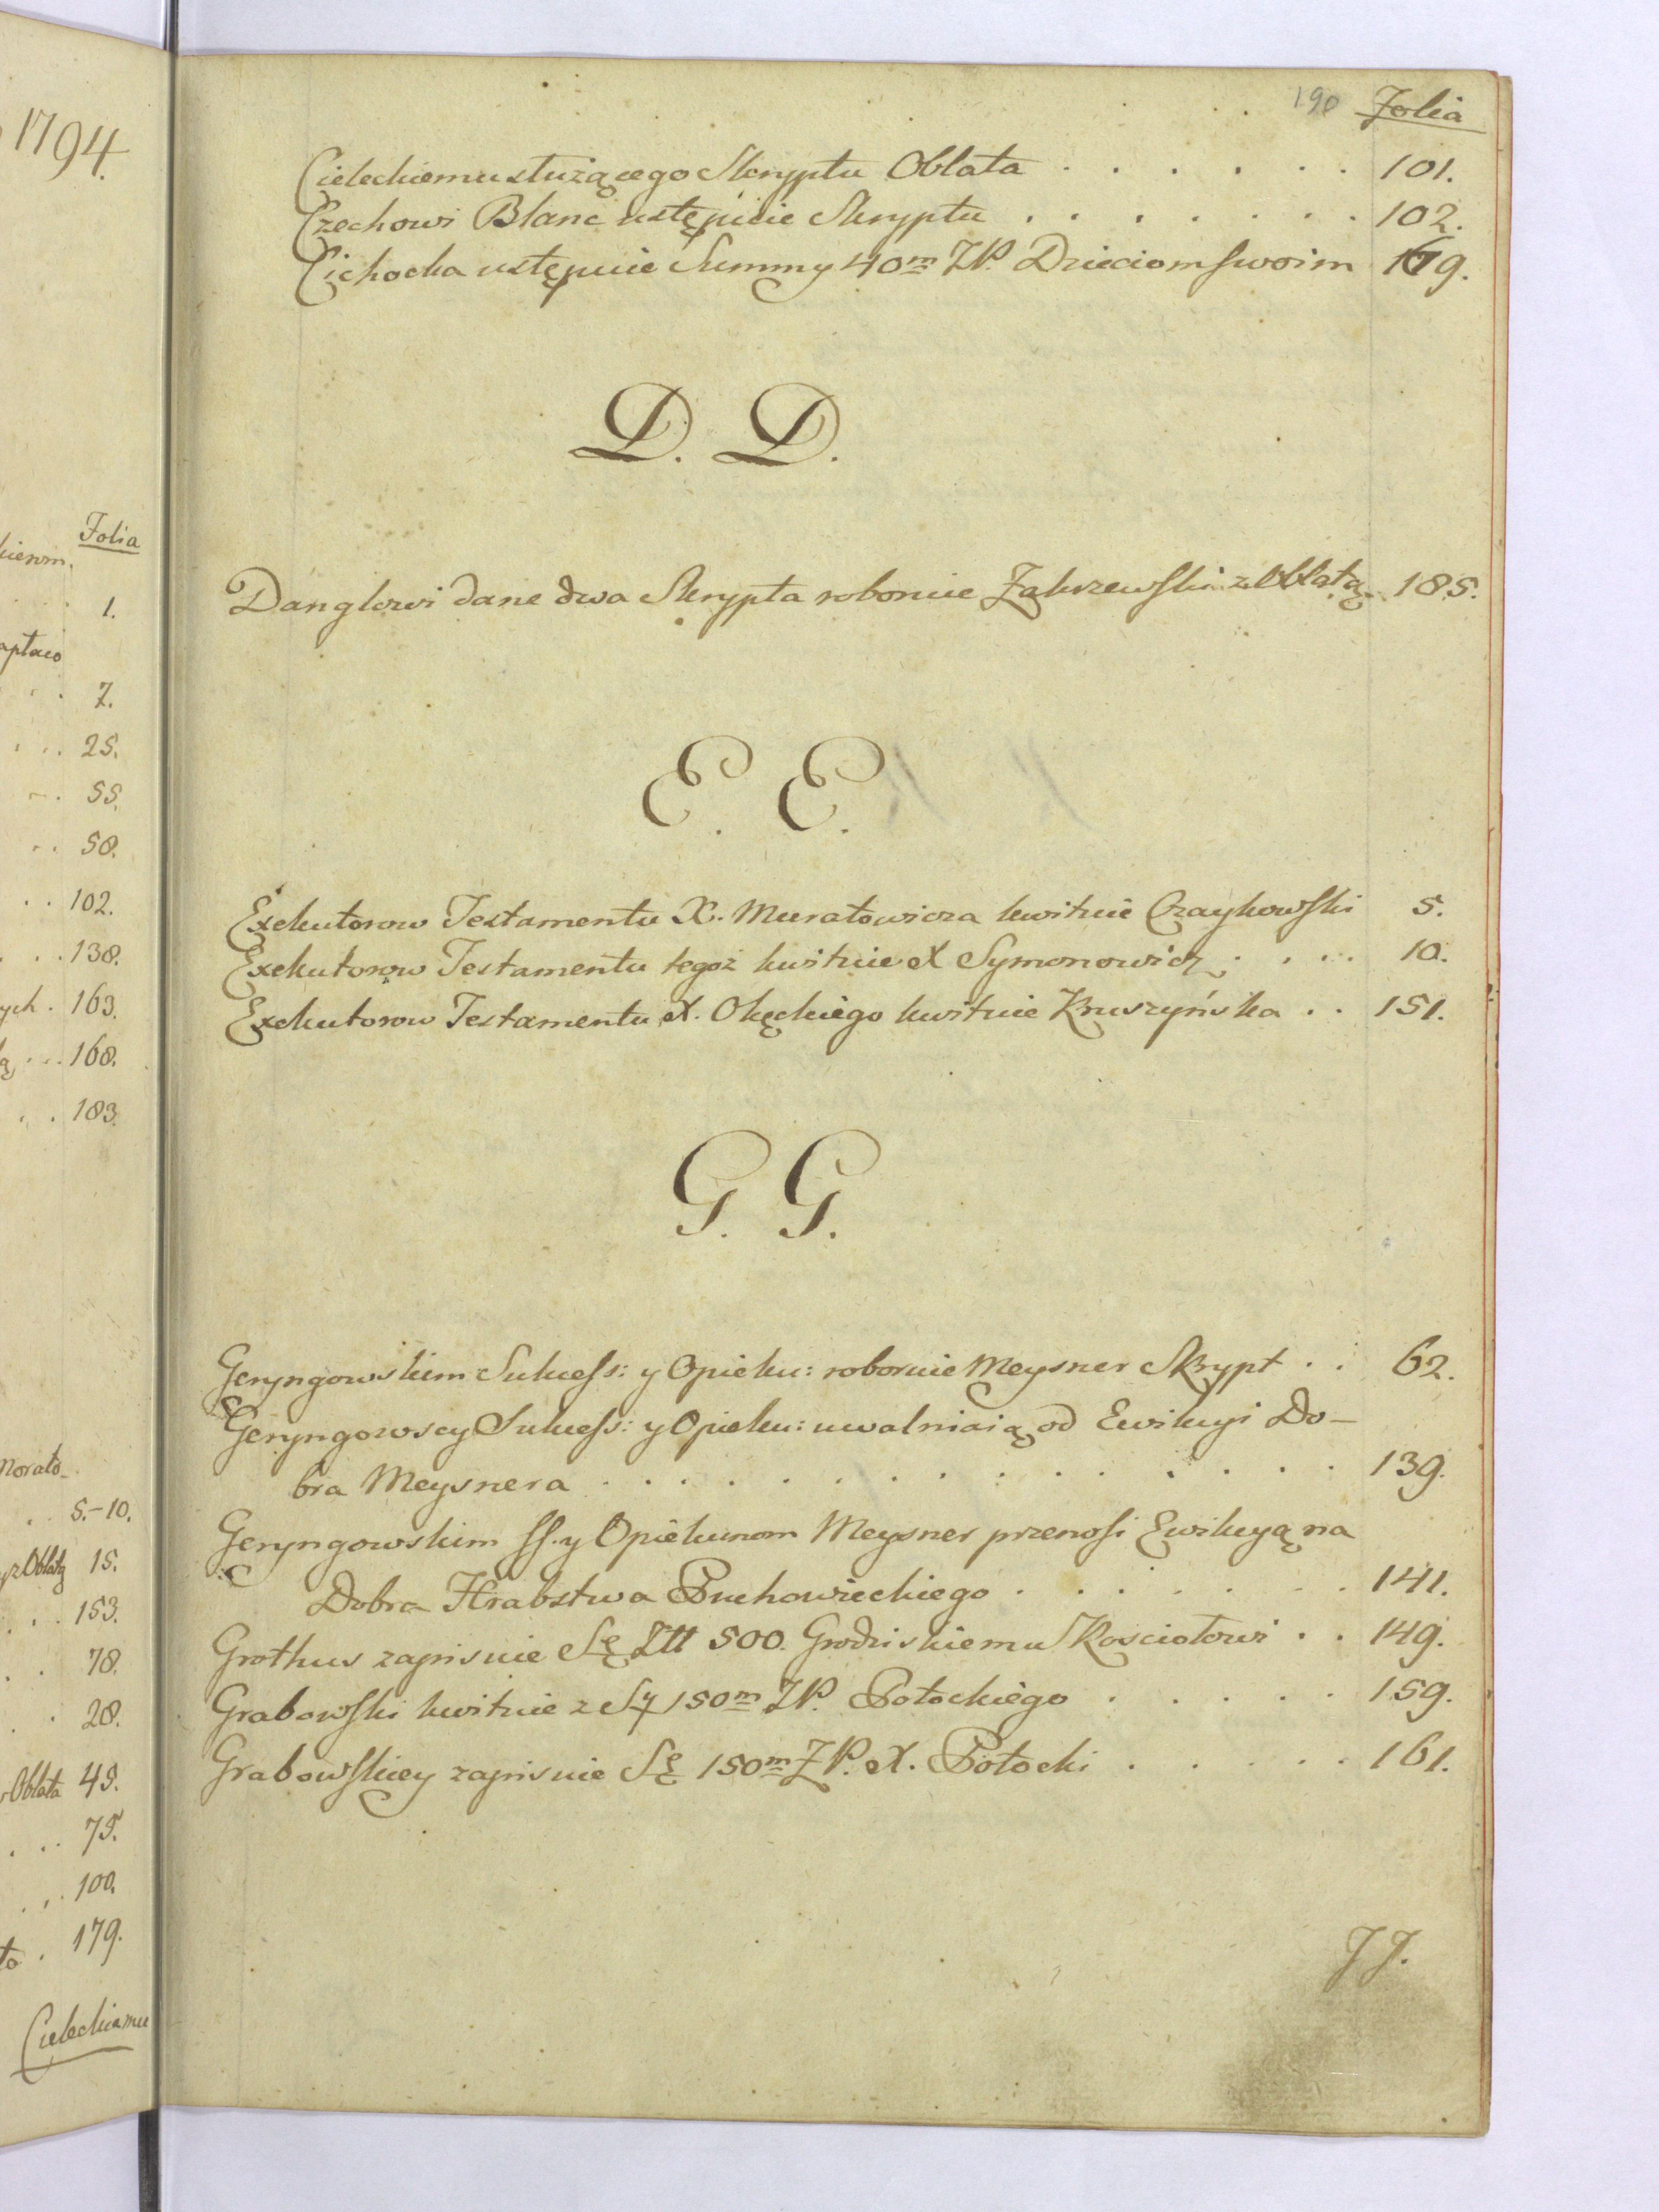 1794.
Folia
1.
7.
25.
55.
58.
102.
138.
ych . 163.
168.
183.
5.-10.
15.
153.
78.
28.
Oblata 49.
75.
100.
179.
Cieleckiemu
190 Folia
Cieleckiemu służącego Skryptu Oblata . . . . . . 101.
Czechowi Blanc ustępuie Skryptu . . . . . . . 102.
Cichocka ustępuie Summy 40m ZP. Dzieciom swoim 179.
D. D.
Danglowi dane dwa Skrypta roboruie Zakrzewski z Oblatą 185.
E. E.
Exekutorow Testamentu X. Muratowicza kwituie Czaykowski 5.
Exekutorow Testamentu tegoż kwituie X Symonowicz . . . . 10.
Exekutorow Testamentu X. Okęckiego kwituie Kruszyńska . . 151.
G. G.
Geryngowskim Sukcess: y Opieku: roboruie Meysner Skrypt . . 62.
Geryngowscy Sukcess: y Opieku: uwalniaią od Ewikcyi Do-
bra Meysnera . . . . . . . . . . . . . 139.
Geryngowskim SS. y Opiekunom Meysner przenosi Ewikcyą na
Dobra Hrabstwa Puchowieckiego . . . . . . . 141.
Grothus zapisuie Sę Ztt 500. Grodziskiemu Kosciołowi . . 149.
Grabowski kwituie z Sy 150m ZP. Potockiego . . . . . 159.
Grabowskiey zapisuie Sę 150m ZP. X. Potocki . . . . . 161.
J J.